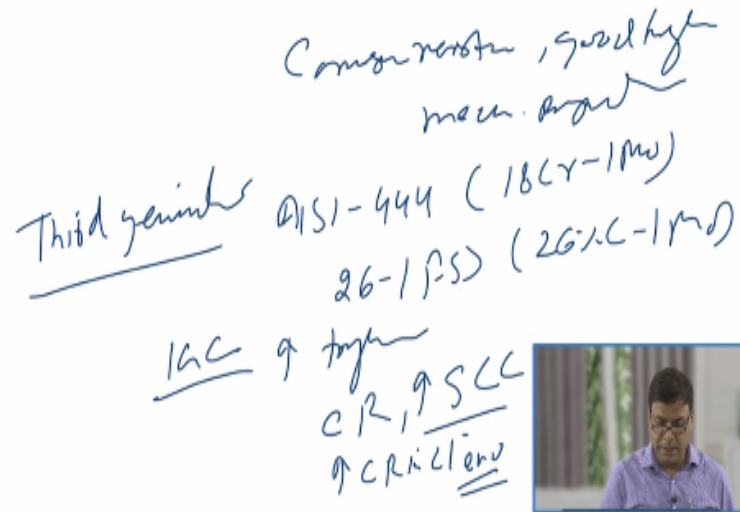 Corrosion resistance, good high
mech. property
Third generation AISI-444 (18Cr-1Mo)
26-1 FSS (26%C-1Mo)
IGC ↑ tough
CR, ↑SCC
↑CR in Cl env